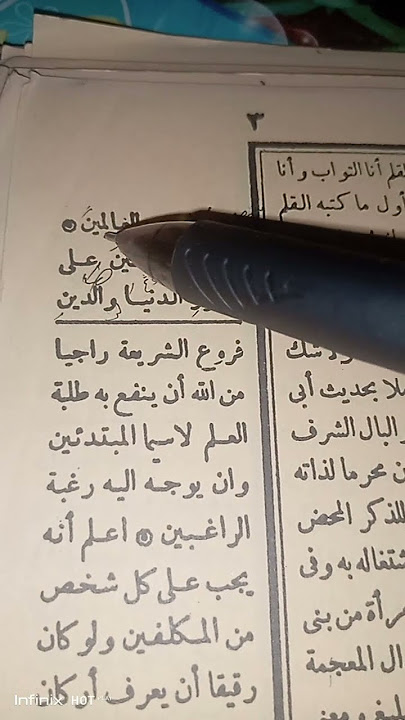 ٣
العالمين
على
الدنيا والدين
فروع الشريعة راجيا
من الله أن ينفع به طلبة
العلم لاسيما المبتدئين
وان يوجه اليه رغبة
الراغبين اعلم أنه
يجب على كل شخص
من المكلفين ولو كان
رقيقا أن يعرف أركان
القلم أنا التواب وأنا
أول ما كتبه القلم
ملا بحديث أبى
البال الشرف
ن محرما لذاته
للذكر المحض
شتغاله به وفى
مرأة من بنى
ال المعجمة
Infinix HOT